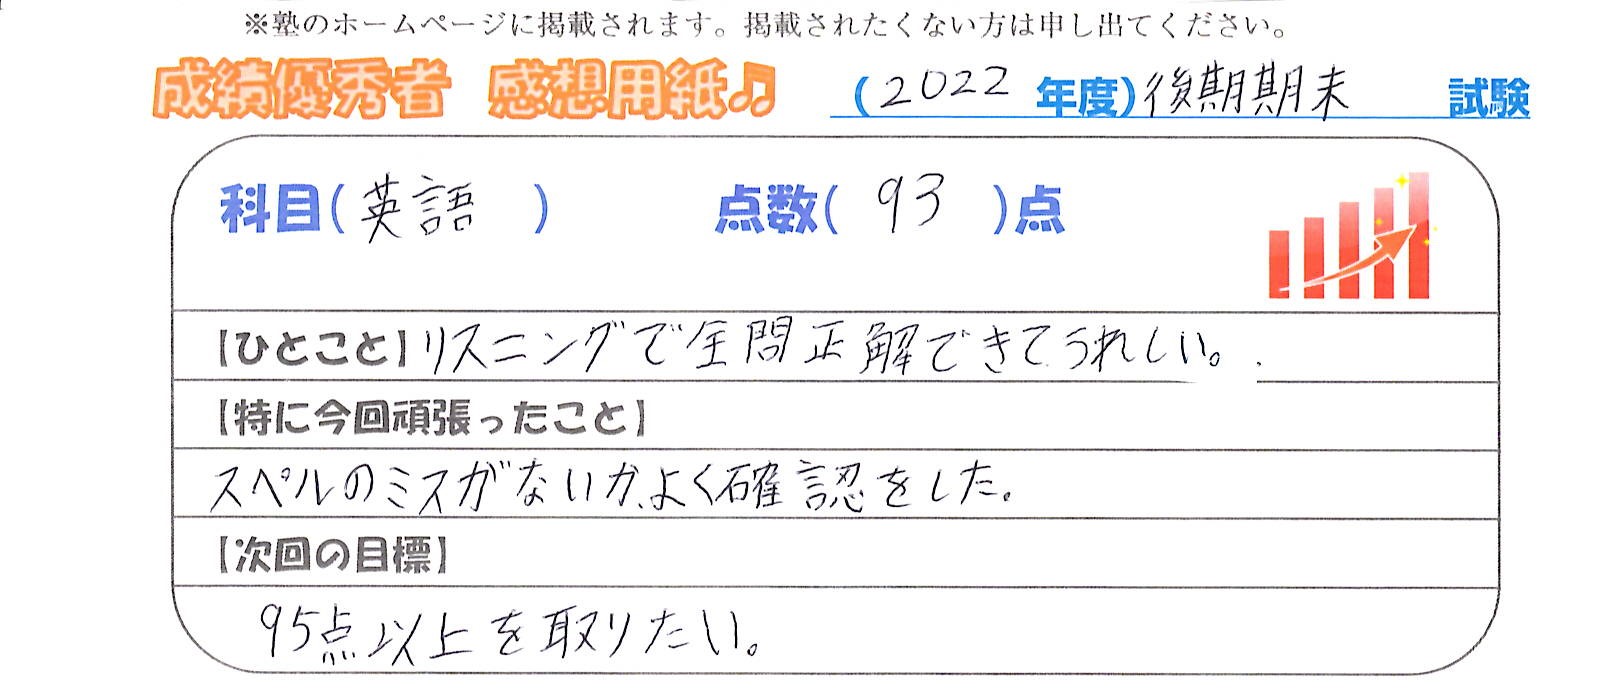 ※塾のホームページに掲載されます。掲載されたくない方は申し出てください。
成績優秀者 感想用紙♫ (2022 年度)後期期末 試験
科目(英語 ) 点数( 93 )点
【ひとこと】リスニングで全問正解できてうれしい。
【特に今回頑張ったこと】
スペルのミスがないか、よく確認をした。
【次回の目標】
95点以上を取りたい。